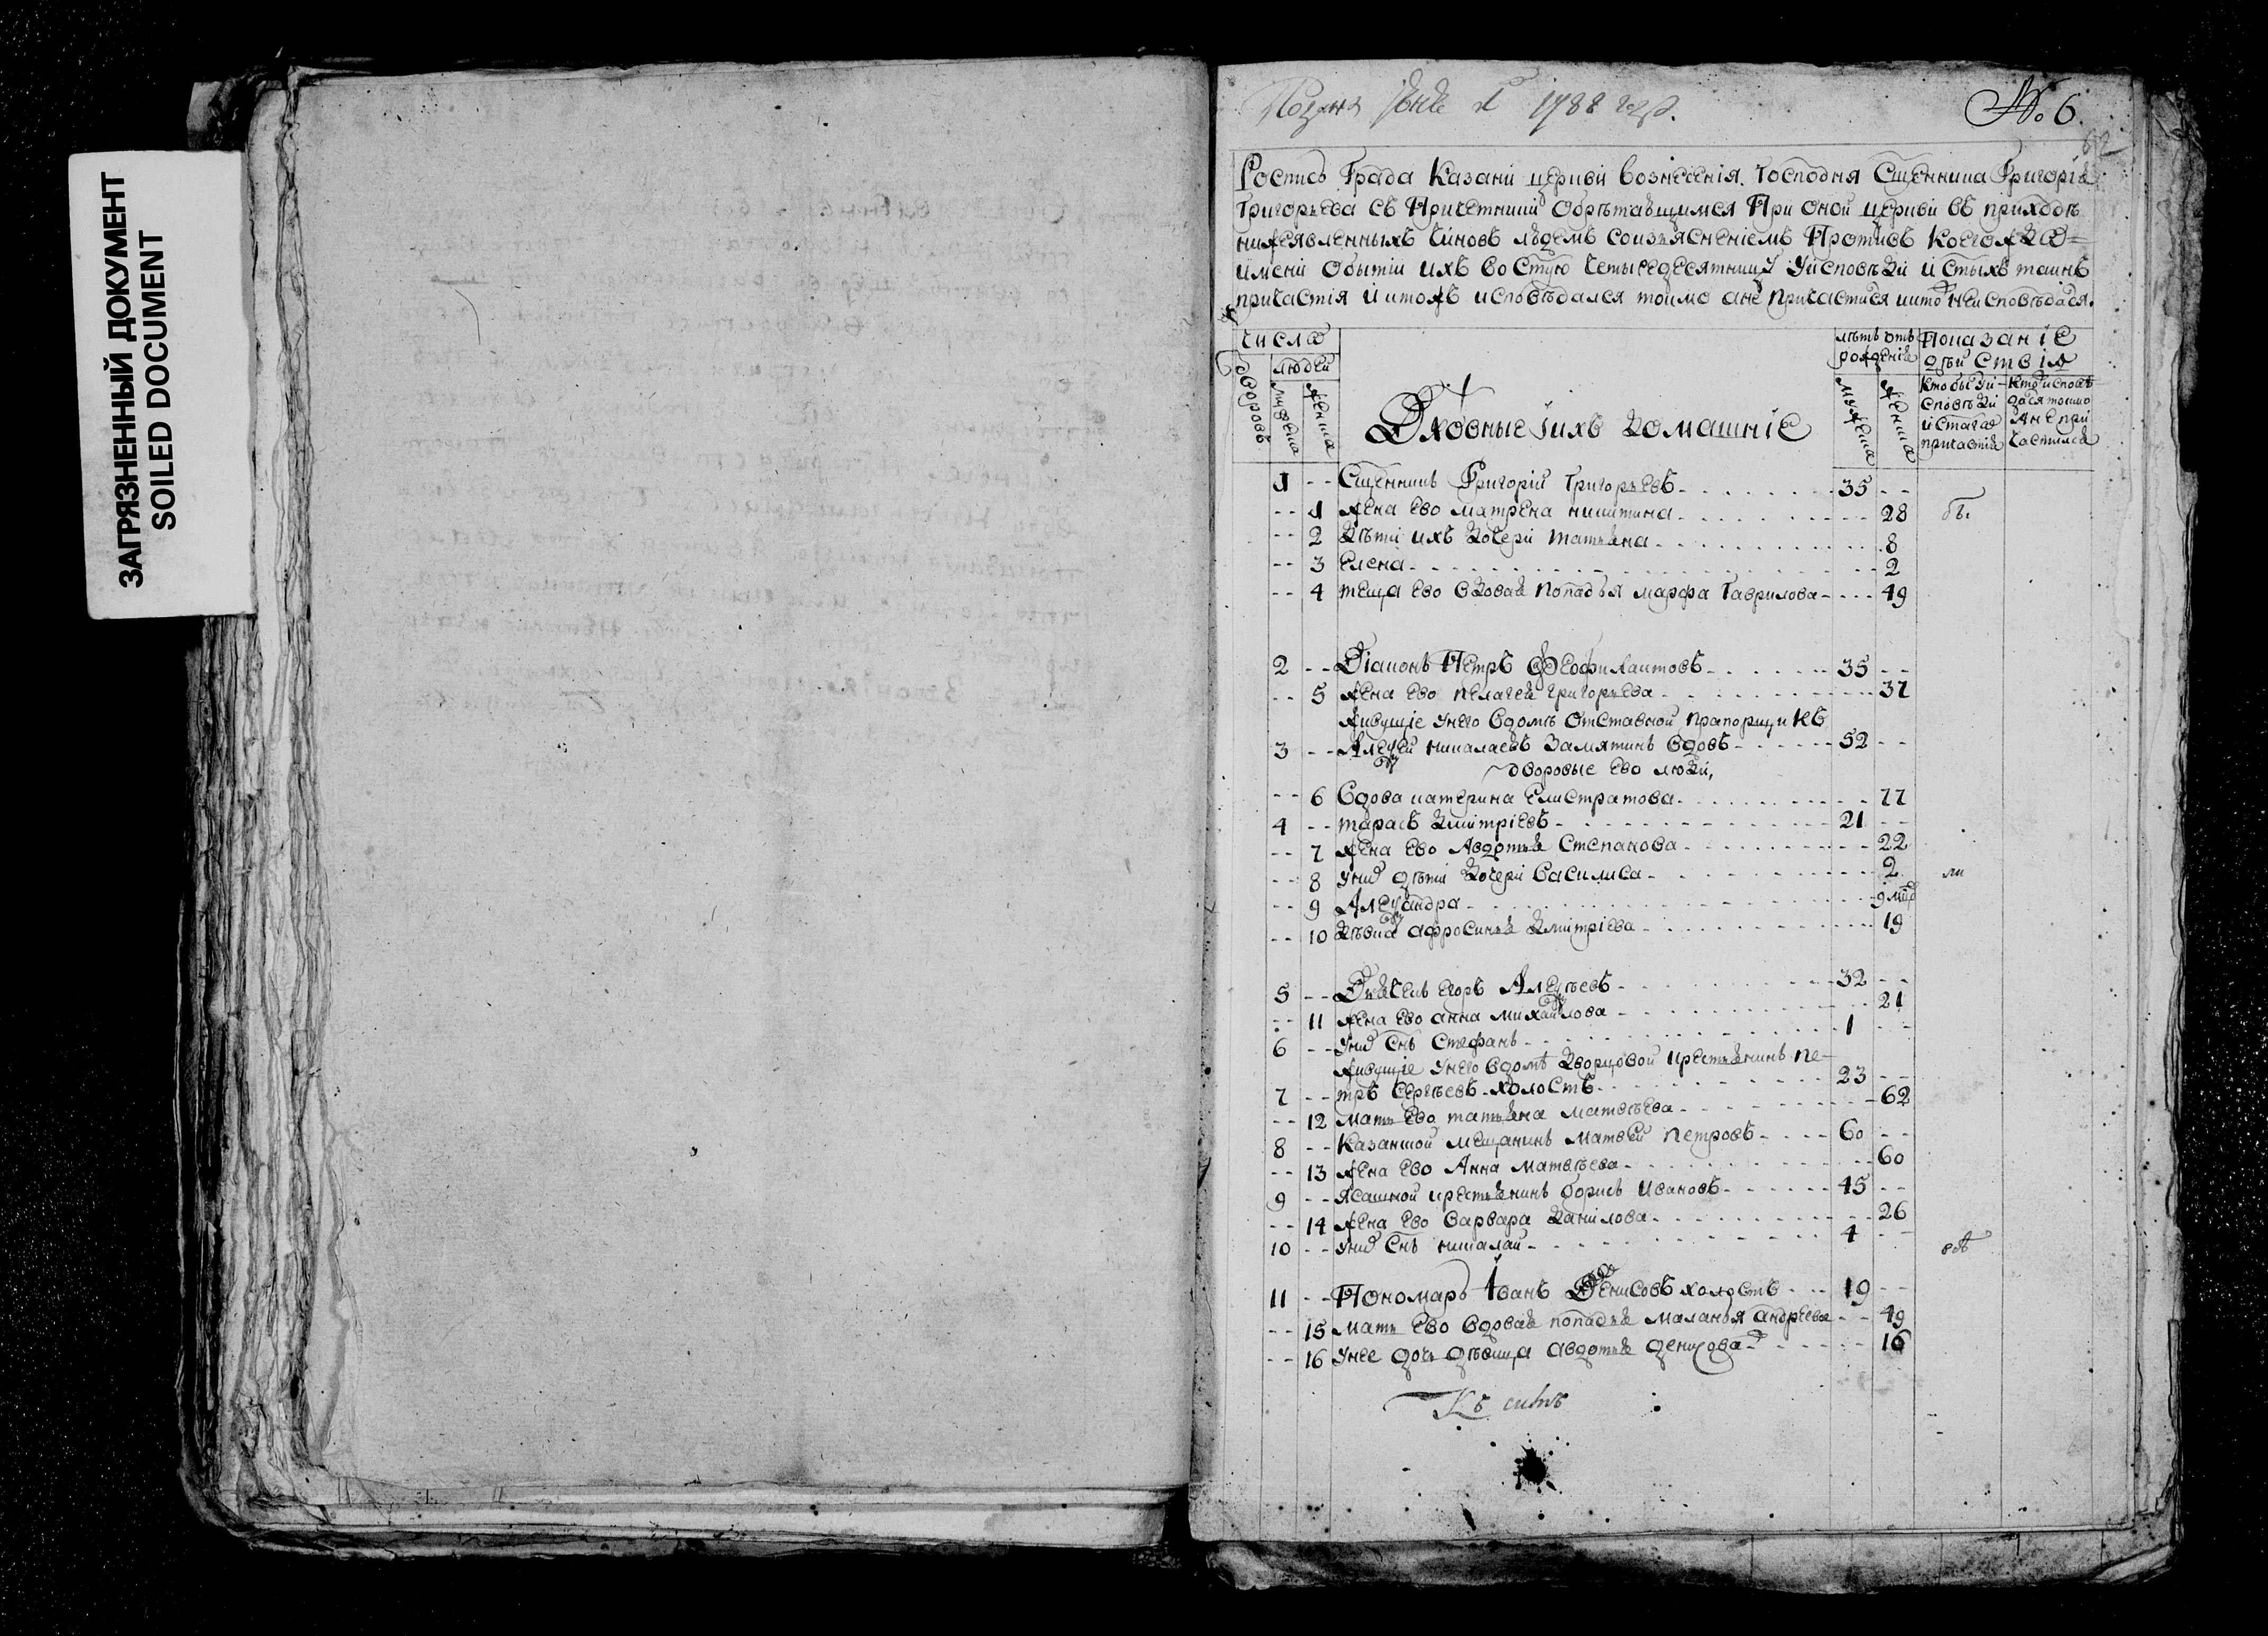 ЗАГРЯЗНЕННЫЙ ДОКУМЕНТ
SOILED DOCUMENT
1788 году.
№ 6.
62
Роспись Града Казани церкви вознесения Господня Сщенника Григорія
Григорьева съ Причетники Обрѣтающимся При оной церкви въ приходѣ
нижеявленныхъ чиновъ людемъ соизъясненіемъ Противъ коегождо
имени Обытіи ихъ во Стую четыредесятницу Уисповѣди и Стыхъ таинъ
причастія и ктожъ исповѣдался токмо а не причастился и кто не исповѣдался.
числа
дворовъ
людей
мужеска
женска
Дховные и ихъ домашніе
лѣтъ отъ рожденія
мужеска
женска
Показаніе дѣйствія
Кто былъ Уисповѣди и Стаго причастія
Кто исповѣдася токмо А не причастился
1 -- Сщенникъ Григорій Григорьевъ 35 --
-- 1 жена Ево матрена никитина -- 28 бы
-- 2 дѣти ихъ дочери татьяна 8
-- 3 Елена 2
-- 4 теща Ево вдовая попадья марфа Гаврилова 49
2 -- Діаконъ Петръ Феофилактовъ 35 --
-- 5 жена Ево пелагея григорьева 37
живущіе Унего вдомѣ Отставной прапорщикъ
3 -- Алеѯей николаевъ Замятинъ вдовъ 52 --
дворовые Ево люди,
-- 6 вдова катерина Елистратова 77
4 -- тарасъ дмитріевъ 21 --
-- 7 жена Ево Авдотья Степанова 22
-- 8 Унихъ дѣти дочери василиса 2 ли
-- 9 Алеѯандра 9 мцъ
-- 10 дѣвка афросинья дмитріева 19
5 -- Дьячекъ егоръ Алеѯѣевъ 32 --
-- 11 жена Ево анна михайлова 21
6 -- Унихъ Снъ Стефанъ 1 --
живущіе Унего вдомѣ дворцовой крестьянинъ пе-
7 -- тръ Сергѣевъ холостъ 23 --
-- 12 мать Ево татьяна матвѣева 62
8 -- Казанской мещанинъ матвей петровъ 60 --
-- 13 жена Ево Анна матвѣева 60
9 -- Ясашной крестьянинъ борисъ Ивановъ 45 --
-- 14 жена Ево варвара данилова 26
10 -- Унихъ Снъ николай 4 --
11 -- Пономарь Иванъ Денисовъ холостъ 19 --
-- 15 мать Ево вдовая попадья маланья андреева 49
-- 16 Унее дочь дѣвица авдотья денисова 16